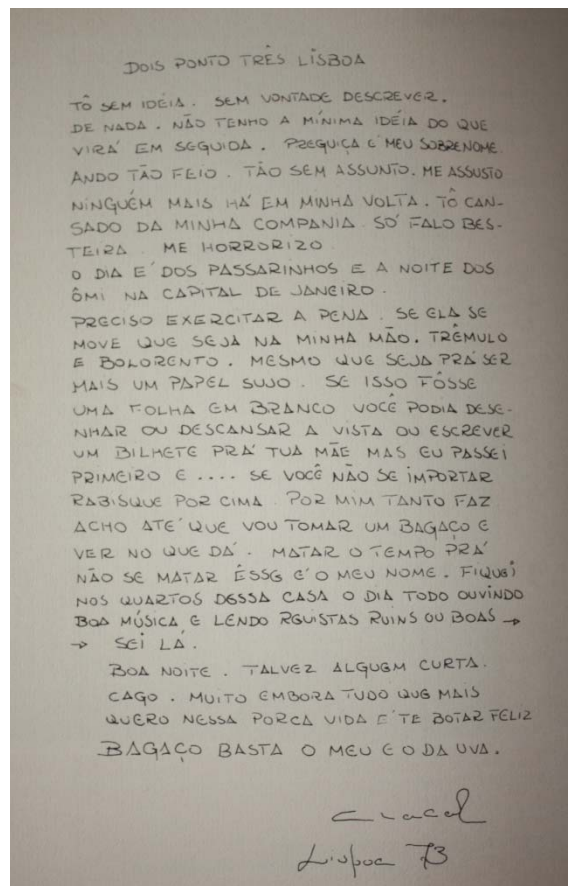 DOIS PONTO TRÊS LISBOA
TÔ SEM IDÉIA. SEM VONTADE DESCREVER.
DE NADA. NÃO TENHO A MÍNIMA IDÉIA DO QUE
VIRÁ EM SEGUIDA. PREGUIÇA É MEU SOBRENOME.
ANDO TÃO FEIO. TÃO SEM ASSUNTO. ME ASSUSTO
NINGUÉM MAIS HÁ EM MINHA VOLTA. TÔ CAN-
SADO DA MINHA COMPANIA. SÓ FALO BES-
TEIRA. ME HORRORIZO
O DIA É DOS PASSARINHOS E A NOITE DOS
ÔMI NA CAPITAL DE JANEIRO.
PRECISO EXERCITAR A PENA. SE ELA SE
MOVE QUE SEJA NA MINHA MÃO. TRÊMULO
E BOLORENTO. MESMO QUE SEJA PRÁ SER
MAIS UM PAPEL SUJO. SE ISSO FÔSSE
UMA FOLHA EM BRANCO VOCÊ PODIA DESE-
NHAR OU DESCANSAR A VISTA OU ESCREVER
UM BILHETE PRÁ TUA MÃE MAS EU PASSEI
PRIMEIRO E .... SE VOCÊ NÃO SE IMPORTAR
RABISQUE POR CIMA. POR MIM TANTO FAZ
ACHO ATÉ QUE VOU TOMAR UM BAGAÇO E
VER NO QUE DÁ. MATAR O TEMPO PRÁ
NÃO SE MATAR ÊSSE É O MEU NOME. FIQUEI
NOS QUARTOS DESSA CASA O DIA TODO OUVINDO
BOA MÚSICA E LENDO REVISTAS RUINS OU BOAS →
→ SEI LÁ.
BOA NOITE. TALVEZ ALGUEM CURTA.
CAGO. MUITO EMBORA TUDO QUE MAIS
QUERO NESSA PORCA VIDA É TE BOTAR FELIZ
BAGAÇO BASTA O MEU E O DA UVA.
Lisboa 73